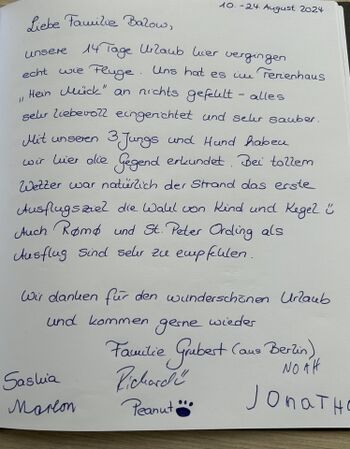 10.-24. August 2024
Liebe Familie Balow,
unsere 14 Tage Urlaub hier vergingen
echt wie Fluge. Uns hat es im Ferienhaus
„Hein Mück" an nichts gefehlt - alles
sehr liebevoll eingerichtet und sehr sauber.
Mit unseren 3 Jungs und Hund haben
wir hier die Gegend erkundet. Bei tollem
Wetter war natürlich der Strand das erste
Ausflugsziel die Wahl von Kind und Kegel ü
Auch Rømø und St. Peter Ording als
Ausflug sind sehr zu empfehlen.
Wir danken für den wunderschönen Urlaub
und kommen gerne wieder
Familie Grubert (aus Berlin)
NOAH
Saskia Richard ü
Marlon Peanut JONATHA